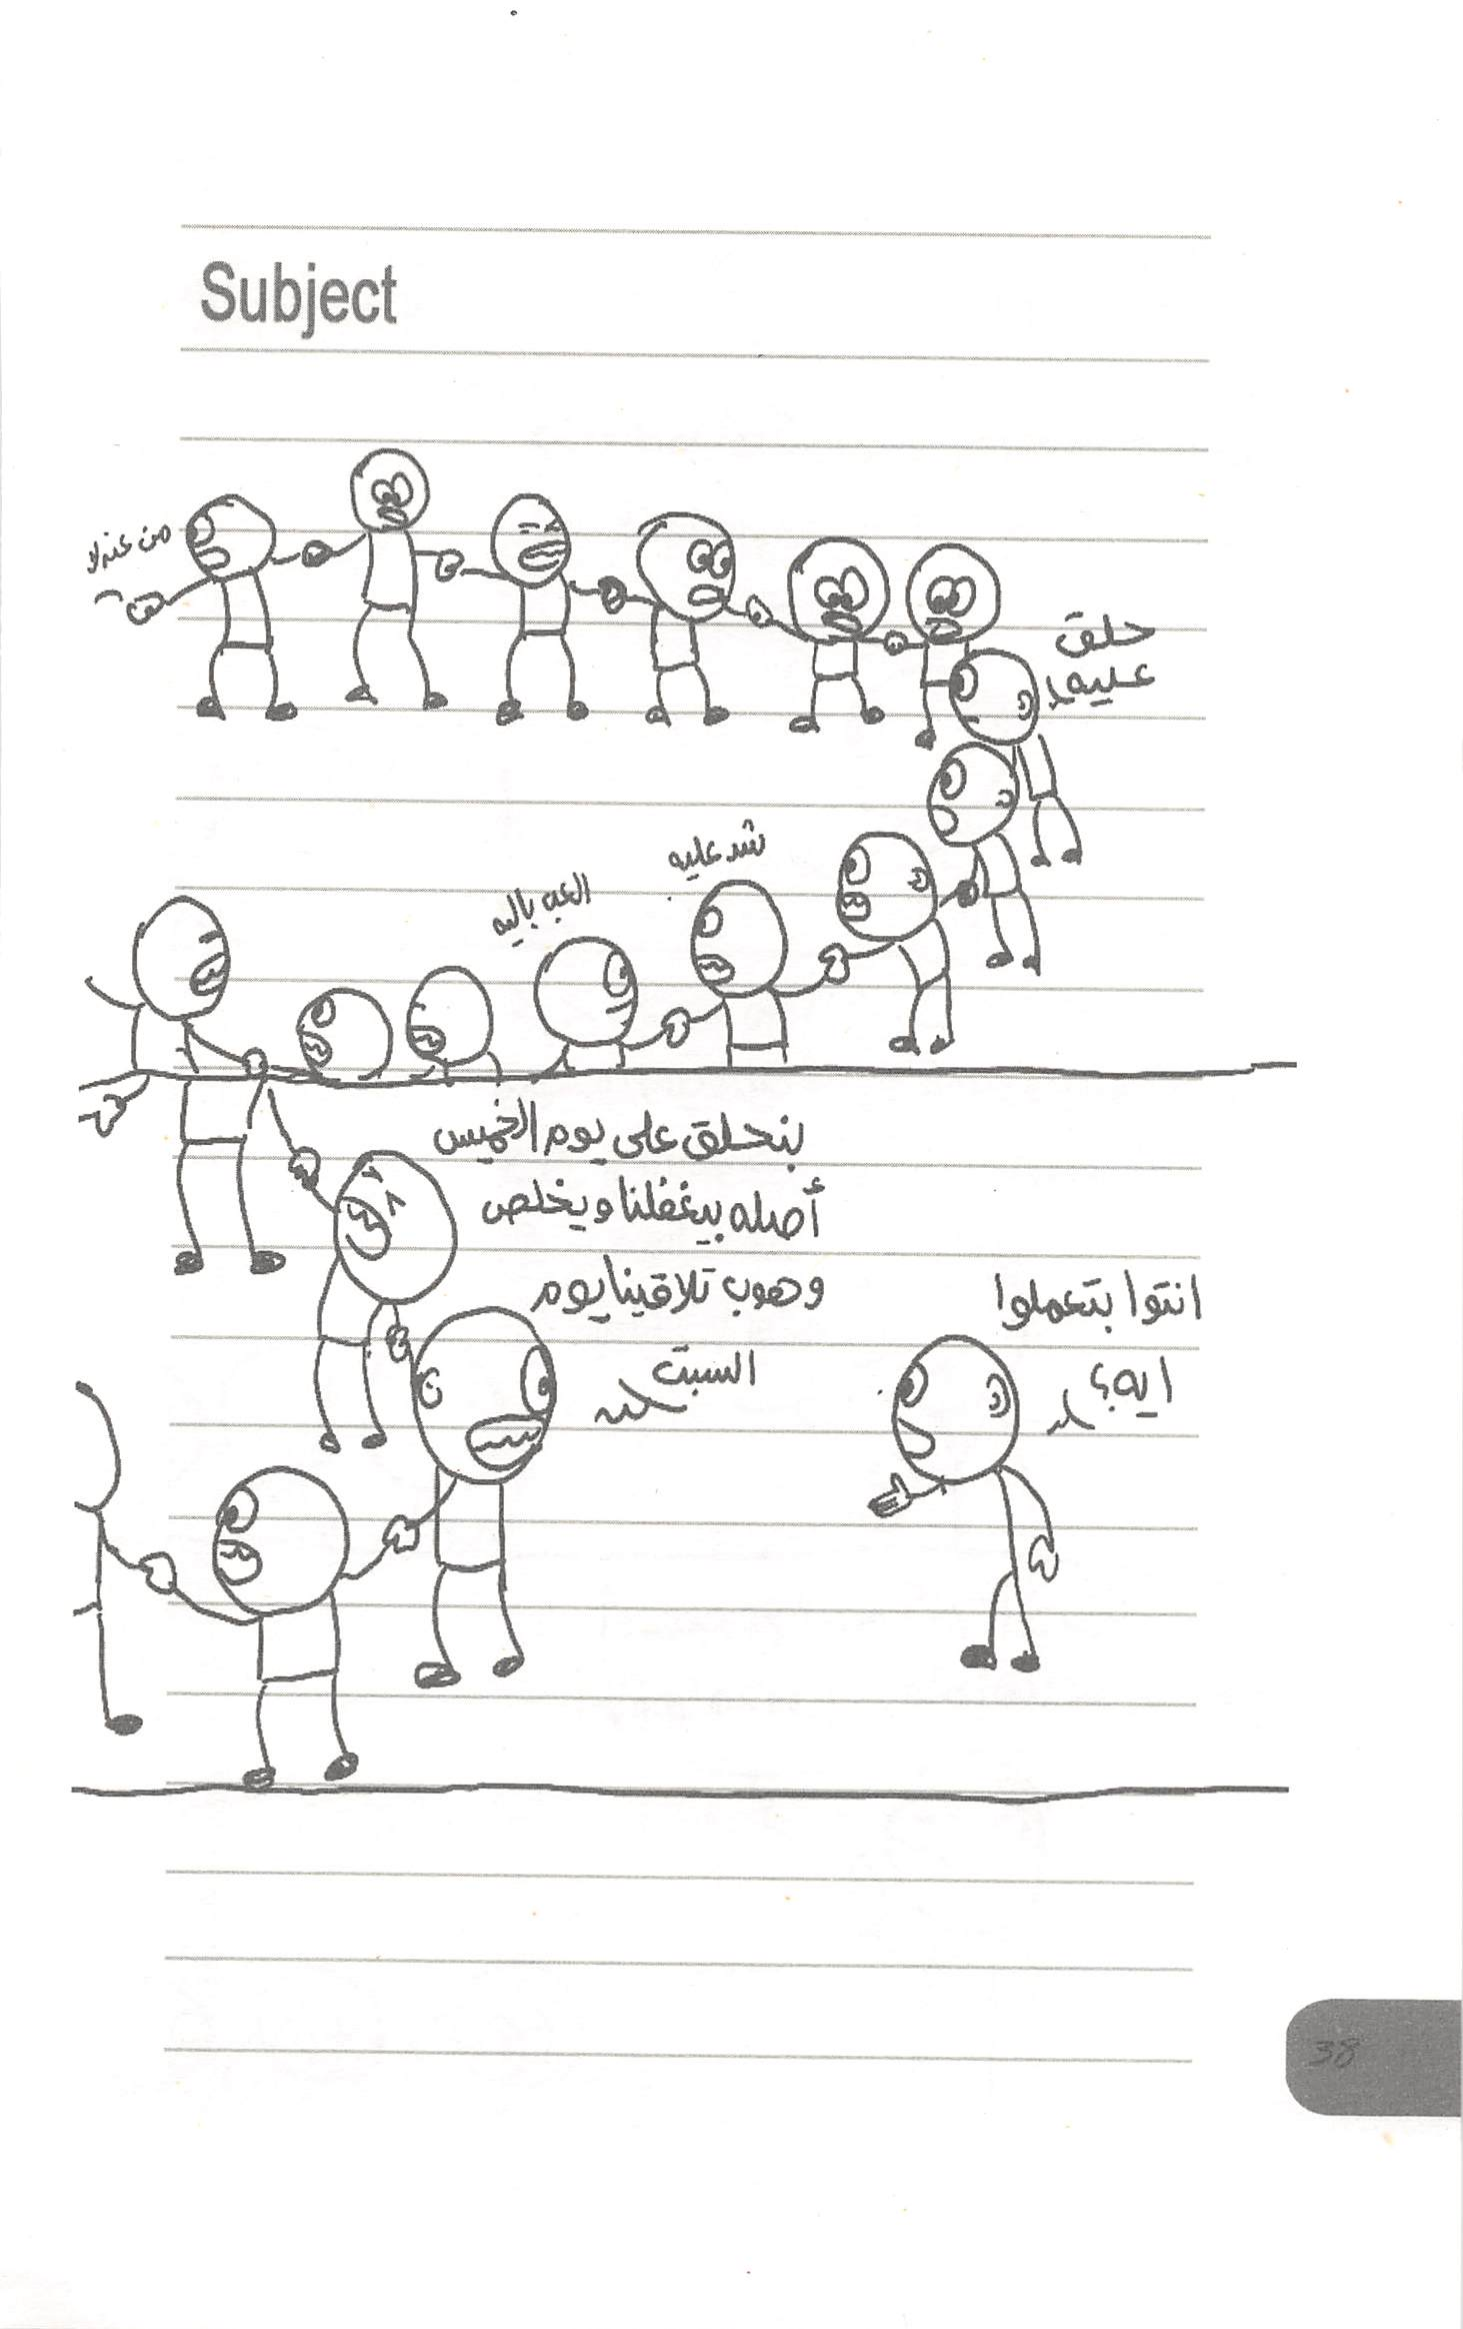 Subject
من عندك
حلق
عليه
شد عليه
العبه باليه
بنحلق على يوم الخميس
أصله بيغفلنا ويخلص
وهوب تلاقينا يوم
السبت
انتوا بتعملوا
ايه؟
38